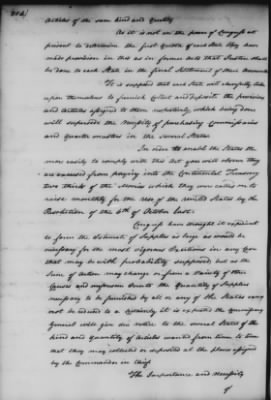 204
Articles of the same kind and quality
As it is not in the power of Congress at
present to determine the just Quota of each State they have
made provision in this as in former acts that Justice shall
be done to each State in the final Settlement of their Accounts
To is supposed that each State will carefully take
upon themselves to furnish collect and deposit the provisions
and Articles assigned to them respectively, which being done
will supersede the necessity of purchasing Commissaries
and quarter masters in the several States
In order to enable the States the
more easily to comply with this Act you will observe they
are excused from paying into the Continental Treasury
two thirds of the Monies which they were called on to
raise monthly for the use of the United States by the
Resolution of the 6th of October last.
Congress have thought it expedient
to form the Estimate of Supplies as large as would be
necessary for the most vigorous Exertions in any Case
that may be with probability supposed, but as the
Scene of action may change or from a Variety of other
Causes and unforeseen Events the Quantity of Supplies
necessary to be furnished by all or any of the States may
not be reduced to a Certainty it is expected the Commissary
General will give due notice to the several States of the
kind and quantity of articles wanted from time to time
that they may collected or deposited at the places assigned
by the Commander in chief
The Importance and Necessity
of